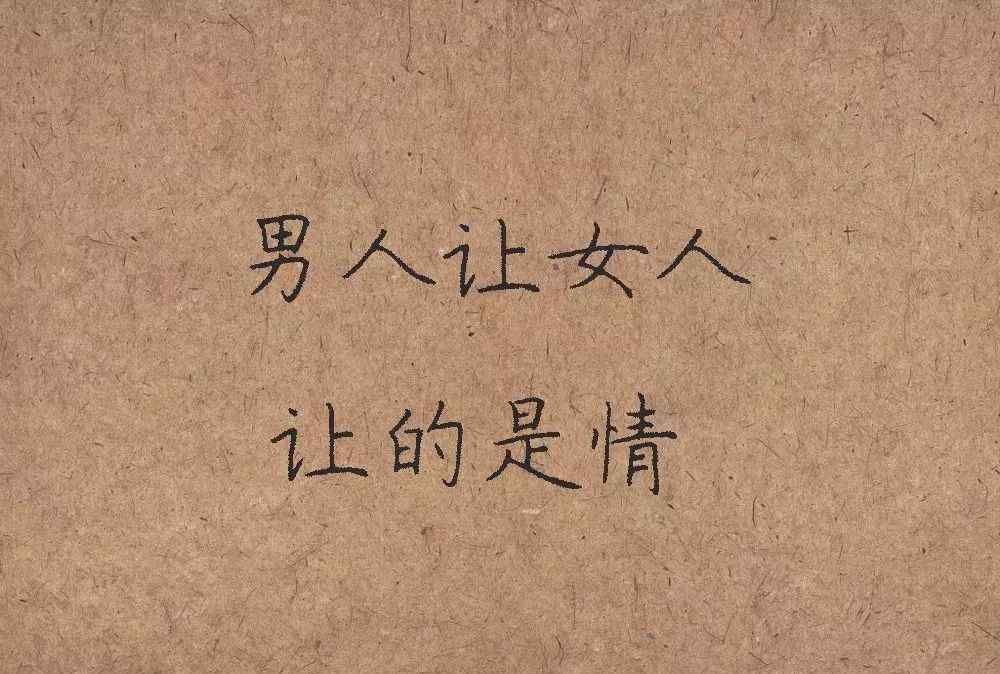 男人让女人
让的是情